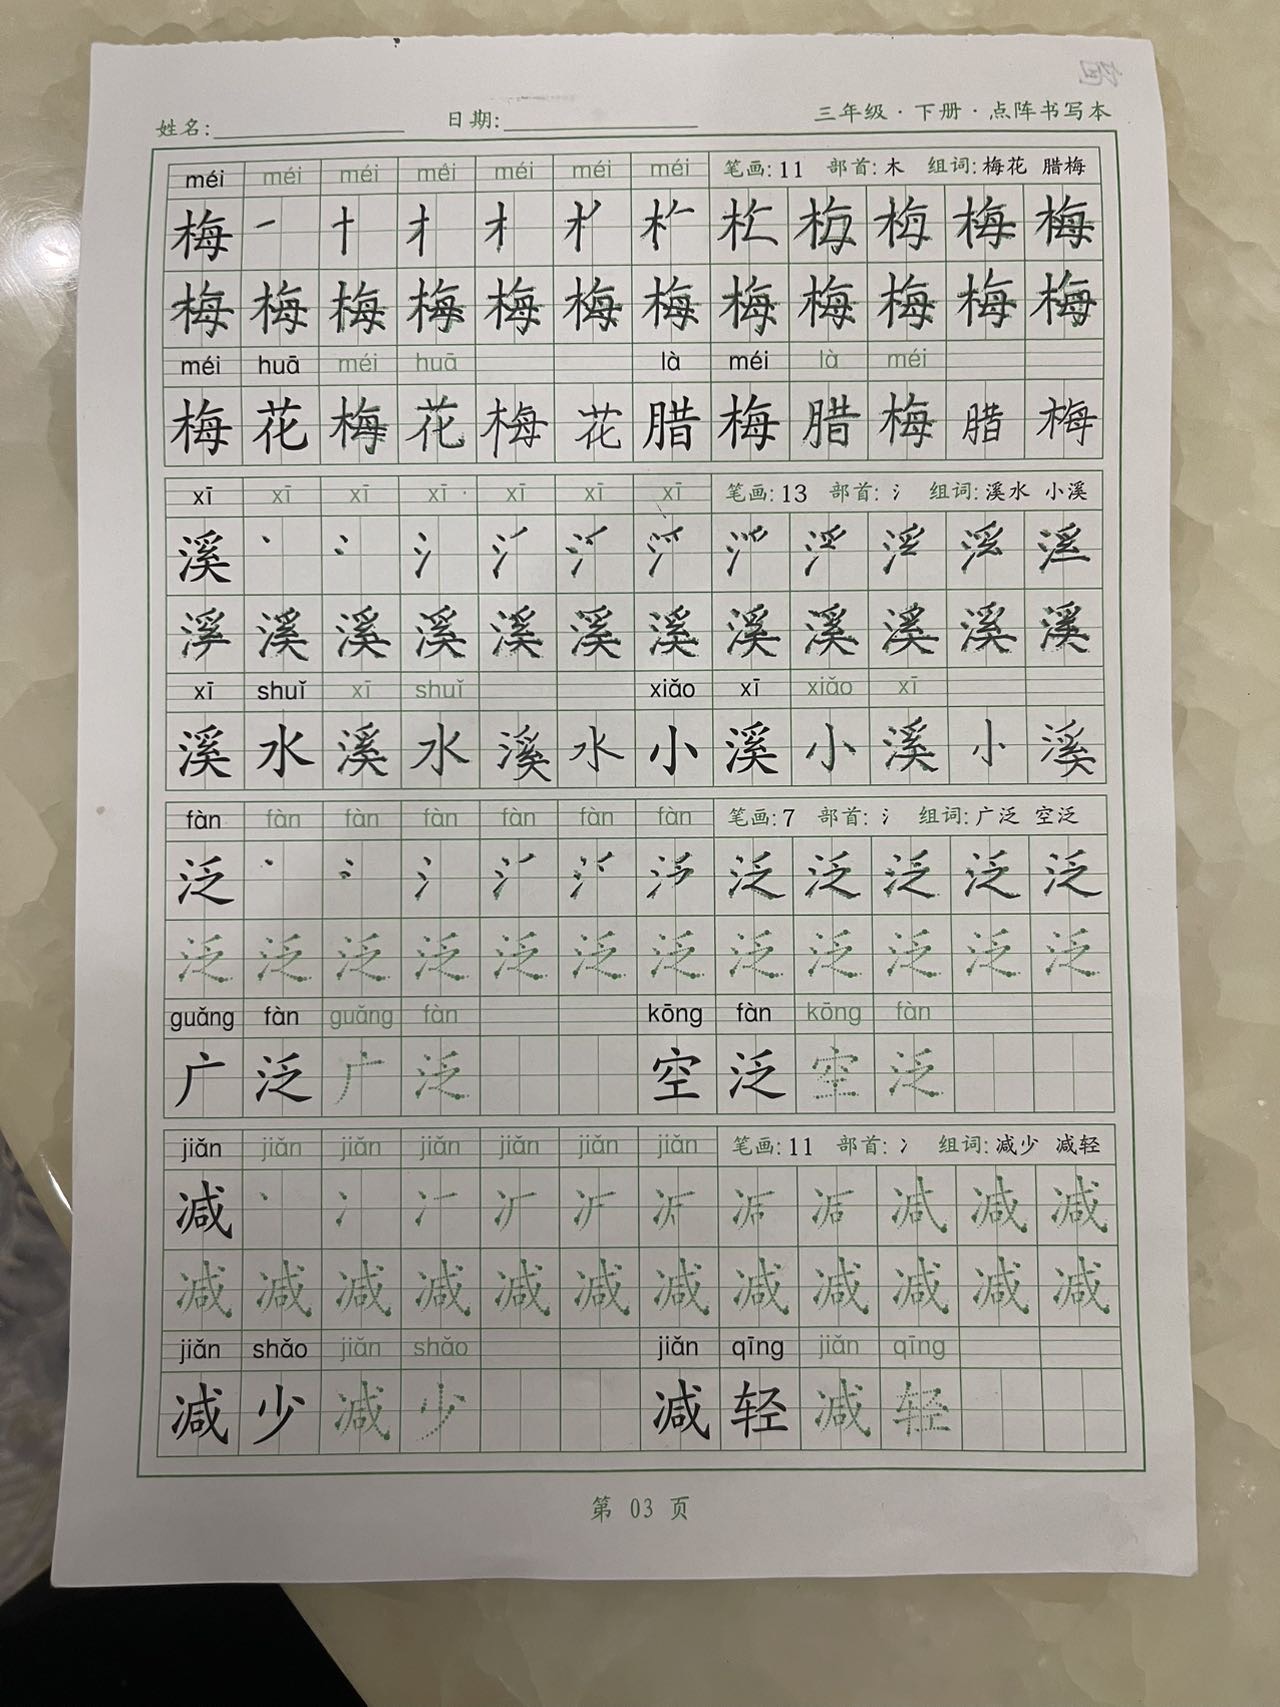 姓名: 日期: 三年级·下册·点阵书写本
méi méi méi méi méi méi méi 笔画: 11 部首: 木 组词: 梅花 腊梅
梅 梅 梅 梅 梅
梅 梅 梅 梅 梅 梅 梅 梅 梅 梅 梅 梅
méi huā méi huā là méi là méi
梅 花 梅 花 梅 花 腊 梅 腊 梅 腊 梅
xī xī xī xī xī xī xī 笔画: 13 部首: 氵 组词: 溪水 小溪
溪 氵
溪 溪 溪 溪 溪 溪 溪 溪 溪 溪 溪
xī shuǐ xī shuǐ xiǎo xī xiǎo xī
溪 水 溪 水 溪 水 小 溪 小 溪 小 溪
fàn fàn fàn fàn fàn fàn fàn 笔画: 7 部首: 氵 组词: 广泛 空泛
泛 氵 泛 泛 泛 泛 泛
泛 泛 泛 泛 泛 泛 泛 泛 泛 泛 泛 泛
guǎng fàn guǎng fàn kōng fàn kōng fàn
广 泛 广 泛 空 泛 空 泛
jiǎn jiǎn jiǎn jiǎn jiǎn jiǎn jiǎn 笔画: 11 部首: 冫 组词: 减少 减轻
减 冫 减 减
减 减 减 减 减 减 减 减 减 减 减 减
jiǎn shǎo jiǎn shǎo jiǎn qīng jiǎn qīng
减 少 减 少 减 轻 减 轻
第 03 页